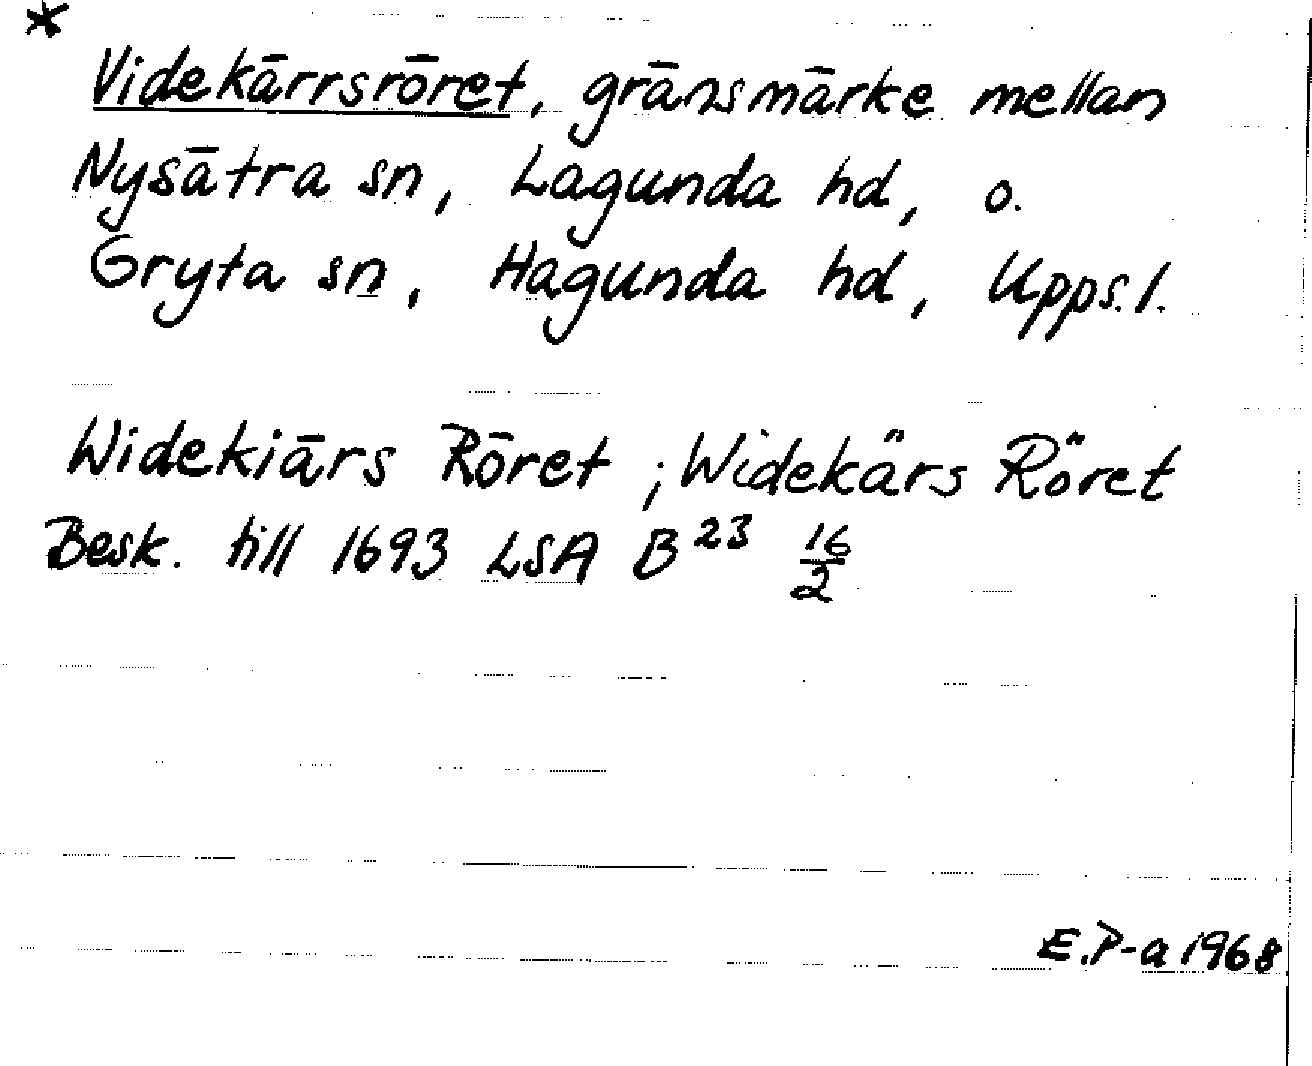 *
Videkärrsröret, gränsmärke mellan
Nysätra sn, Lagunda hd, o.
Gryta sn, Hagunda hd, Upps.l.
Widekiärs Röret ; Widekärs Röret
Besk. till 1693 LSA B²³ 16/2
E.P-a 1968